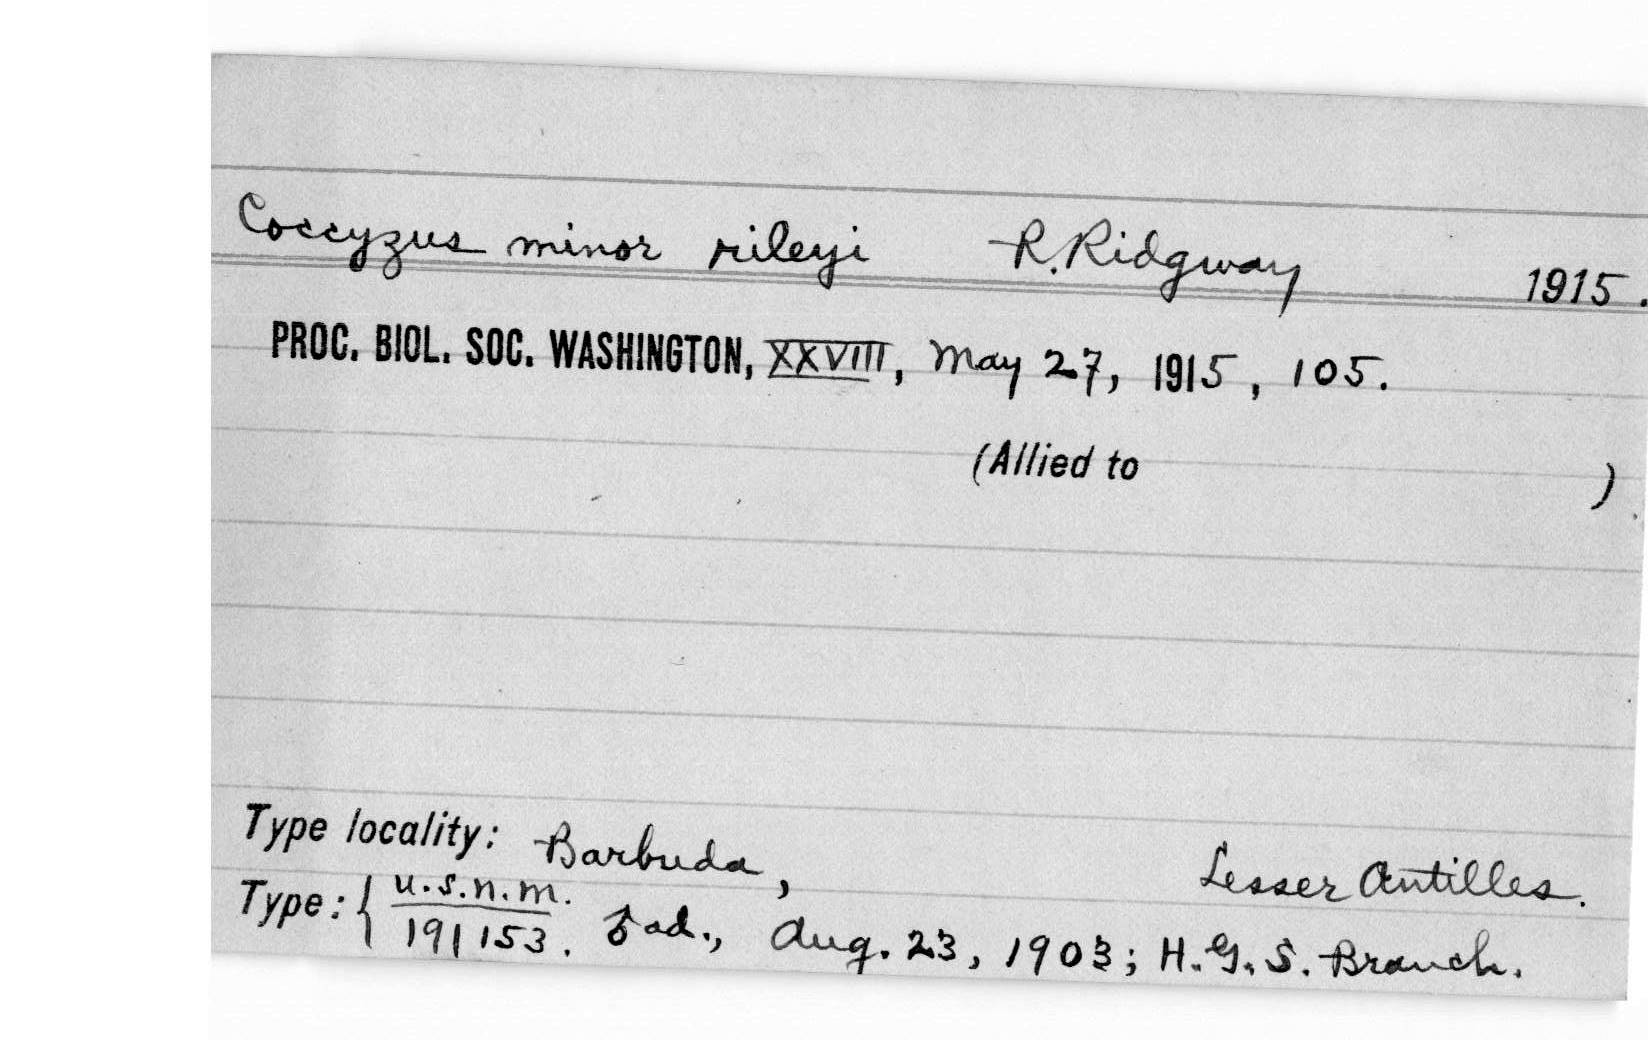 Coccyzus minor rileyi R. Ridgway 1915.
PROC. BIOL. SOC. WASHINGTON, XXVIII, May 27, 1915, 105.
(Allied to )
Type locality: Barbuda, Lesser Antilles.
Type: { U.S.N.M.
191153. ♂ ad., Aug. 23, 1903; H.G.S. Branch.